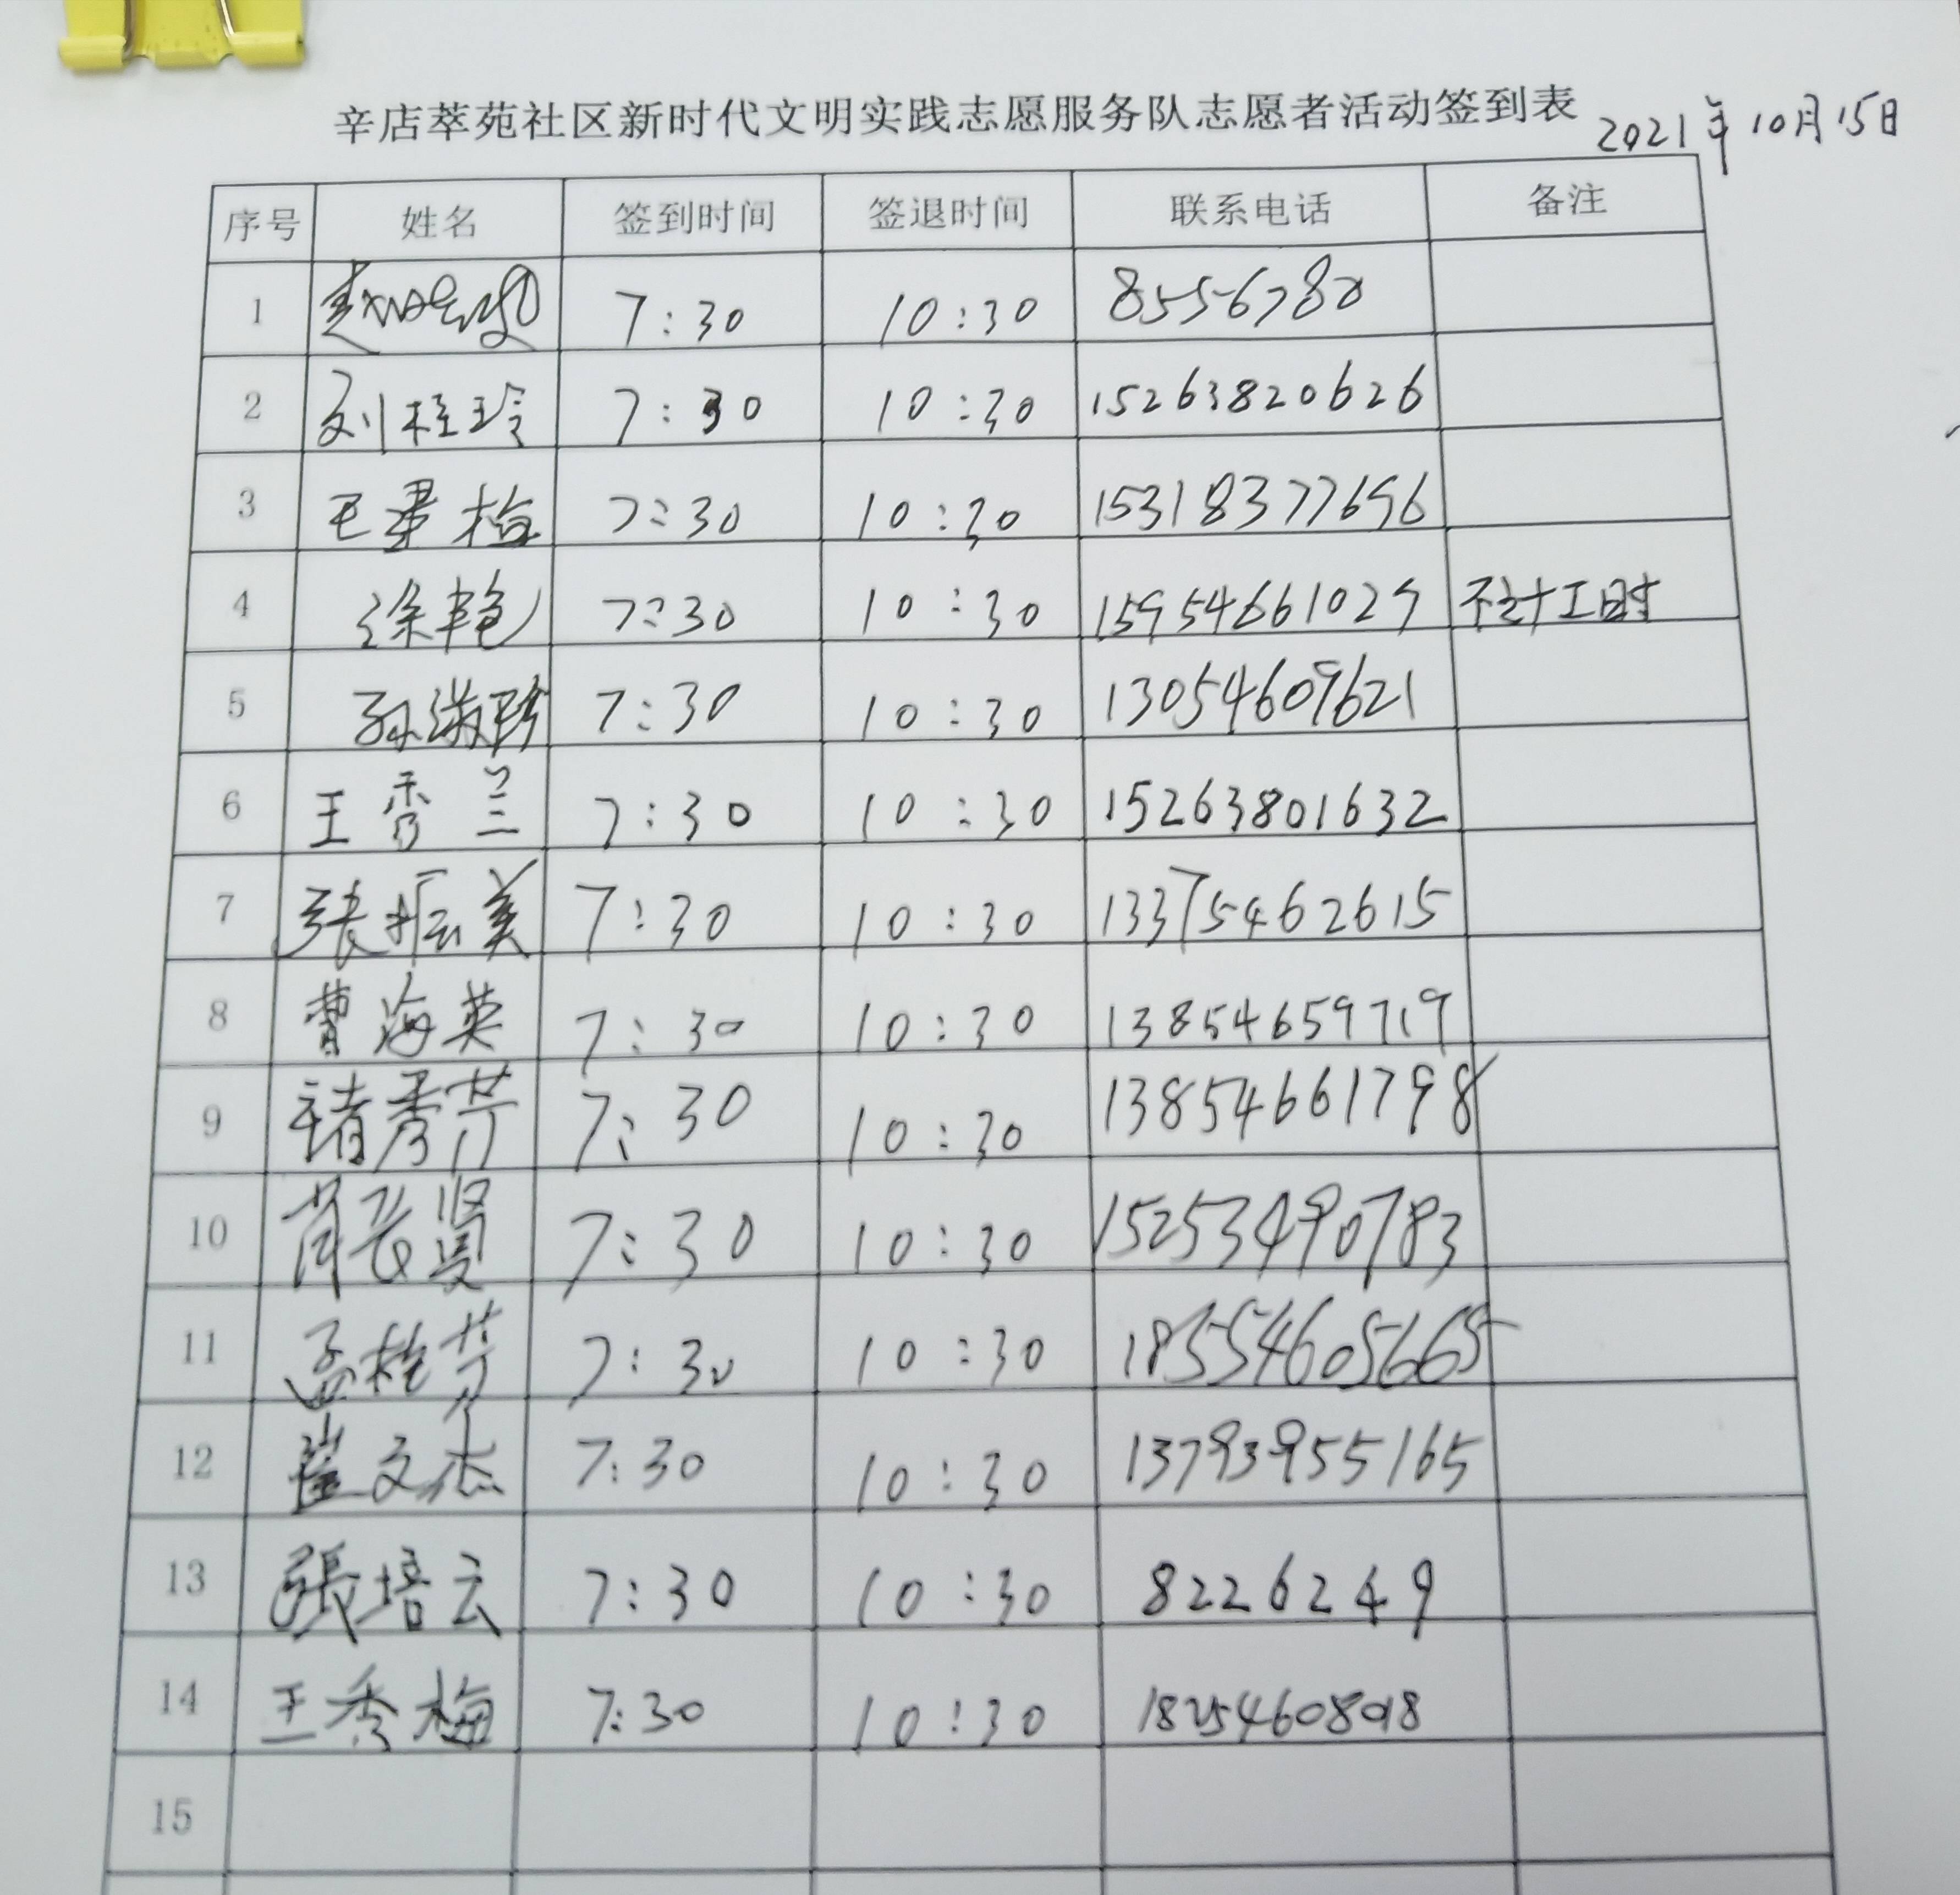 辛店萃苑社区新时代文明实践志愿服务队志愿者活动签到表 2021年10月15日
序号 姓名 签到时间 签退时间 联系电话 备注
1 7:30 10:30 8556780
2 刘桂玲 7:30 10:30 15263820626
3 10:30 7:30 15318377696
4 徐艳 7:30 10:30 15954661029 不计工时
5 孙淑珍 7:30 10:30 13054609621
6 王秀兰 7:30 10:30 15263801632
7 张振美 7:30 10:30 13375462615
8 曹海英 7:30 10:30 13854659719
9 褚秀芳 7:30 10:30 13854661798
10 肖爱贤 7:30 10:30 15253490783
11 孟桂芳 7:30 10:30 18554605665
12 崔文杰 7:30 10:30 13793955165
13 張培云 7:30 10:30 8226249
14 王秀梅 7:30 10:30 18254608018
15